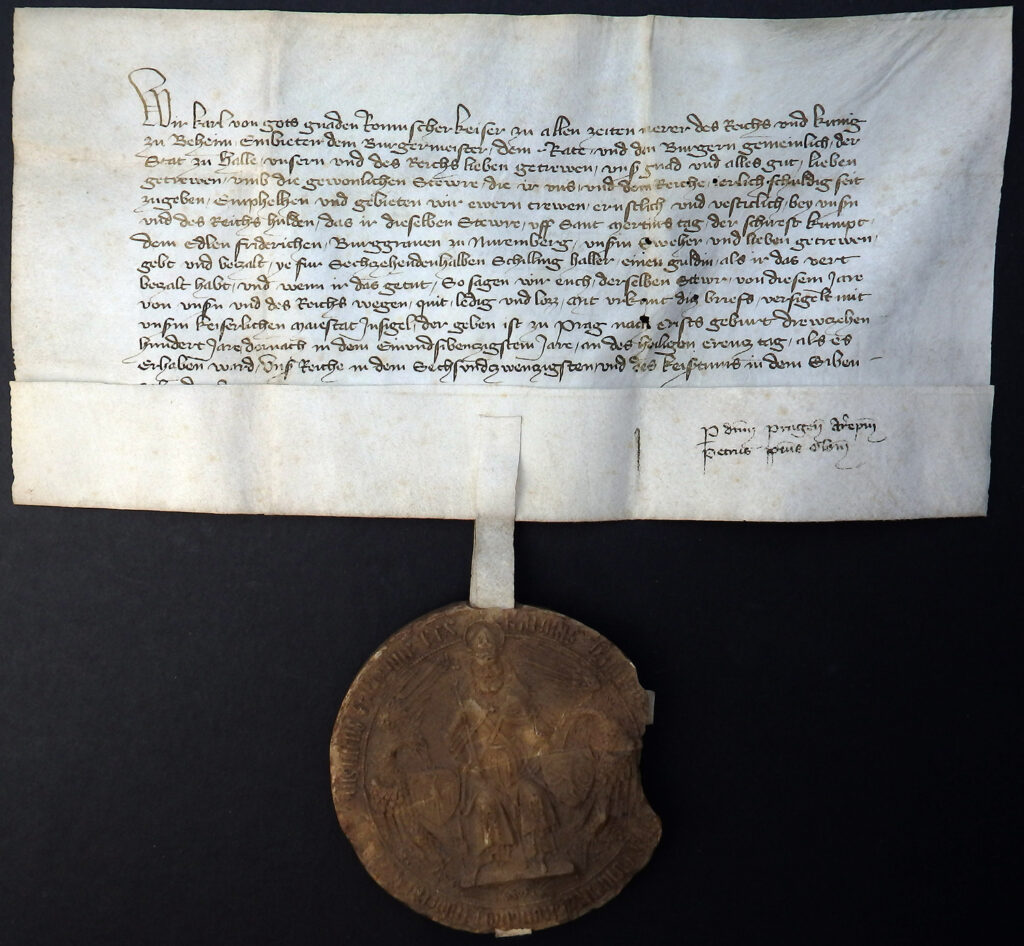 Wir karl von gots gnaden Romischer keiser zu allen zeiten merer des Reichs vnd kunig
zu Beheim, Embieten dem Burgermeister, dem Rate, vnd den Burgern gemeinlich, der
Stat zu Halle, vnsern vnd des Reichs lieben getrewen, vnß gnad vnd alles gut, lieben
getrewen, vmb die gewonlichen Stewre, die ir vns, vnd dem Reiche, ierlich schuldig seit
zugeben, Emphelhen vnd gebieten wir ewern trewen, ernstlich vnd vesticlich, bey vnsn
vnd des Reichs hulden, das ir dieselben Stewre, vff Sant Mertins tag, der schirest kumpt,
dem Edlen Friderichen, Burggrauen zu Nuremberg, vnsm Sweher vnd lieben getrewen,
gebt vnd bezalt, ye fur Sechzehendenhalben Schilling haller, einen guldin, als ir das vert
bezalt habt, vnd wenn ir das getut, So sagen wir euch, derselben Stewr, von diesem Jare
von vnsn vnd des Reichs wegen, quit, ledig vnd lozz, Mit vrkunt diß briefs, versigelt mit
vnsm keiserlichen maiestat Jnsigel, der geben ist zu Prag nach crists geburt drewzehen
hundert Jare dornach in dem Einvndsibenzigsten Jare, an des heiligen Creuz tag, als es
Erhaben ward, vnß Reiche in dem Sechsvndzwenzigsten, vnd des keisertums in dem Siben
P dnm pragen Arepm
Petrus